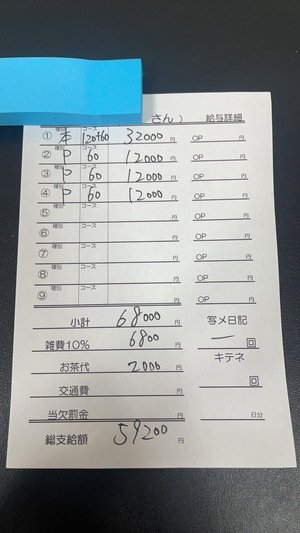 さん） 給与詳細
① 種別 本 コース 120+60 32000 円 OP 円
② 種別 P コース 60 12000 円 OP 円
③ 種別 P コース 60 12000 円 OP 円
④ 種別 P コース 60 12000 円 OP 円
⑤ 種別 コース 円 OP 円
⑥ 種別 コース 円 OP 円
⑦ 種別 コース 円 OP 円
⑧ 種別 コース 円 OP 円
⑨ 種別 コース 円 OP 円
小計 68000 円 写メ日記
雑費10% 6800 円 ー 回
お茶代 2000 円 キテネ
交通費 円 回
当欠罰金 円 日分
総支給額 59200 円